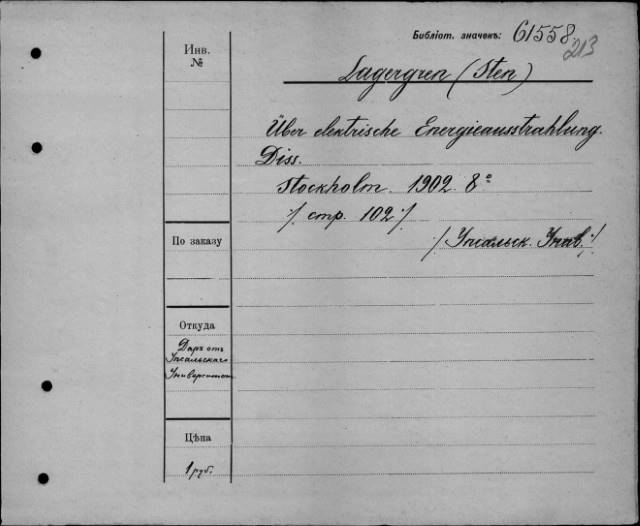 Библіот. значекъ: 61558
213
Инв.
№
Lagergren (Sten)
Über elektrische Energieausstrahlung.
Diss.
Stockholm. 1902. 8°
/. стр. 102 ./
По заказу
/. Упсальск. Унив. ./
Откуда
Даръ отъ
Упсальскаго
Университета
Цѣна
1 руб.